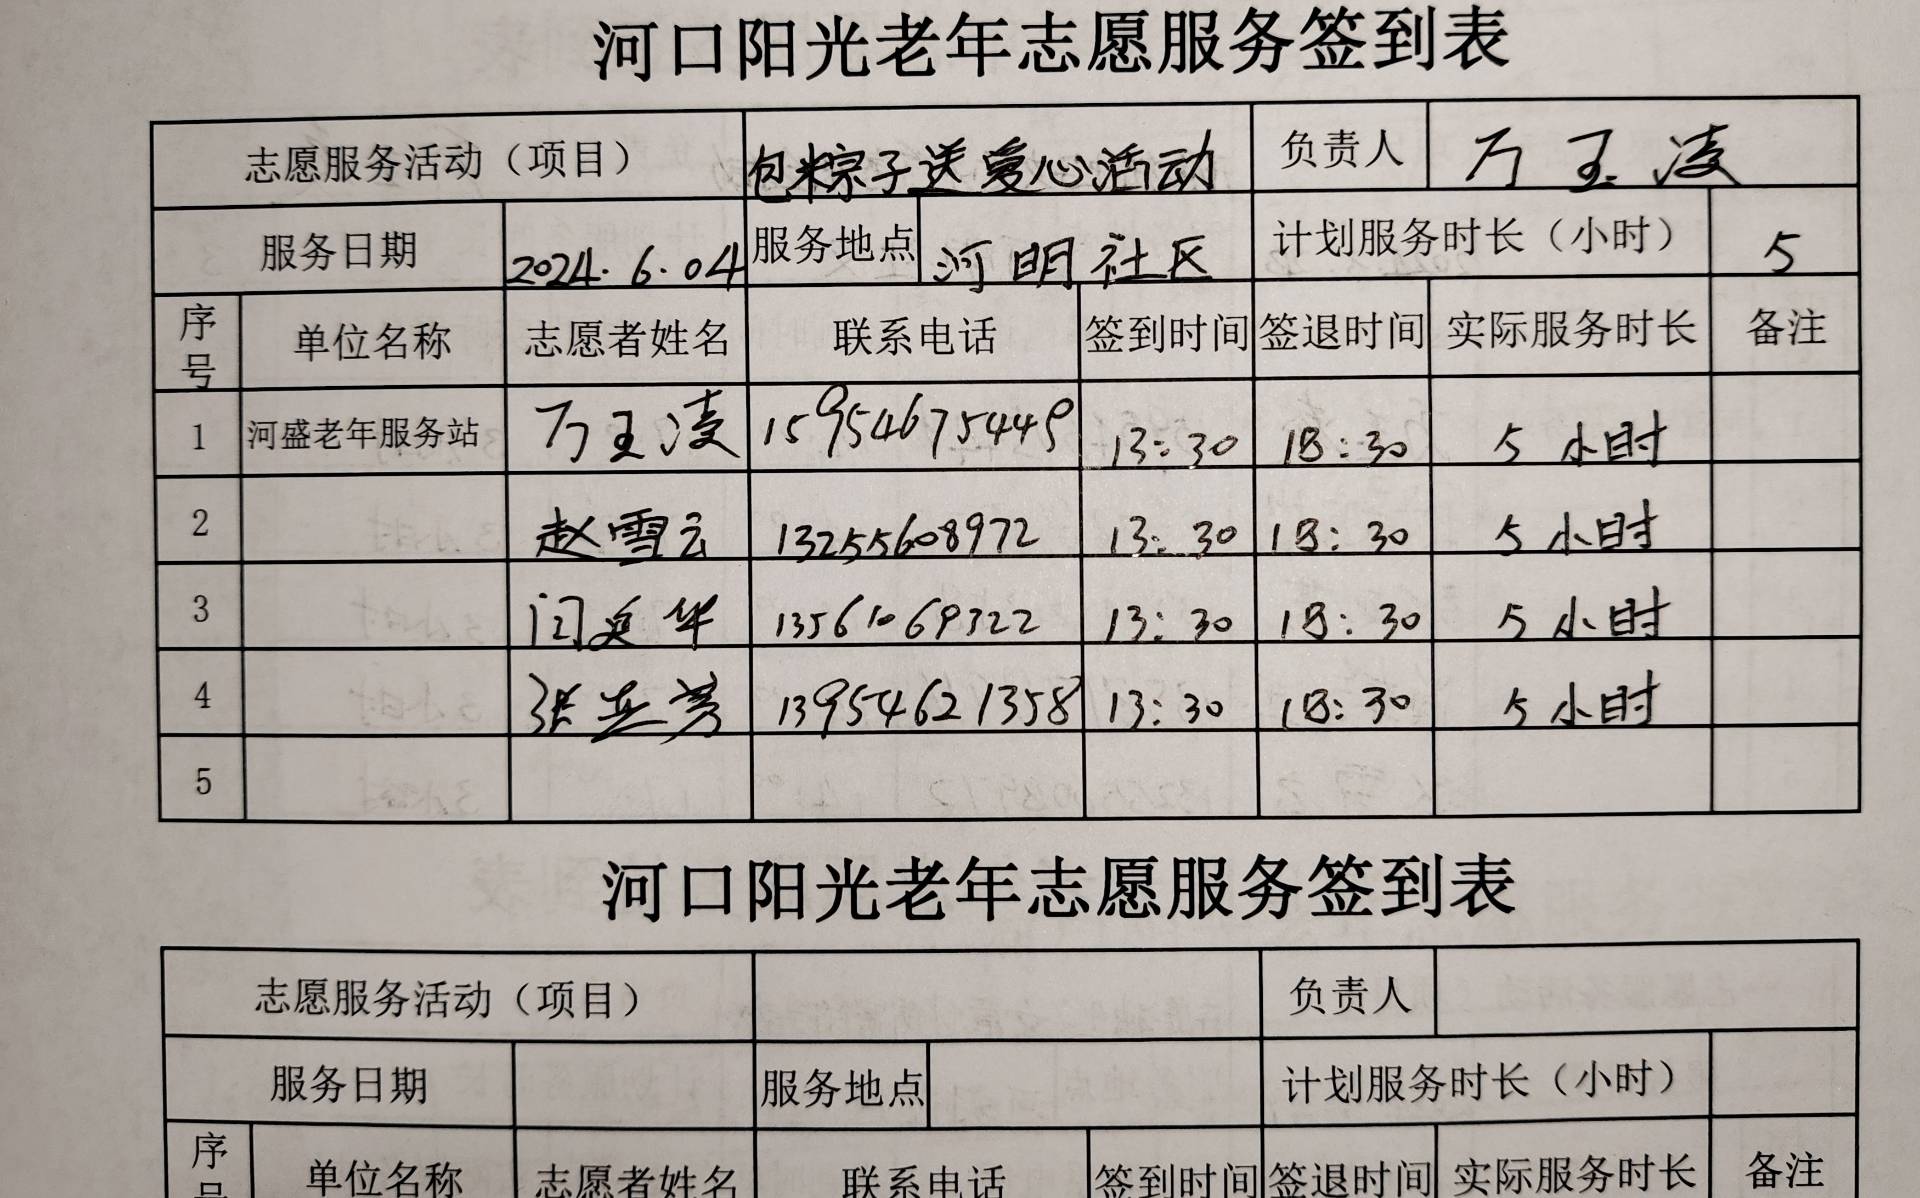 河口阳光老年志愿服务签到表
志愿服务活动（项目） 包粽子送爱心活动 负责人 万玉凌
服务日期 2024.6.04 服务地点 河明社区 计划服务时长（小时） 5
序号 单位名称 志愿者姓名 联系电话 签到时间 签退时间 实际服务时长 备注
1 河盛老年服务站 万玉凌 15954675449 13:30 18:30 5小时
2 赵雪云 13255608972 13:30 18:30 5小时
3 华 13561069322 13:30 18:30 5小时
4 张 芳 13954621358 13:30 18:30 5小时
5
河口阳光老年志愿服务签到表
志愿服务活动（项目） 负责人
服务日期 服务地点 计划服务时长（小时）
序号 单位名称 志愿者姓名 联系电话 签到时间 签退时间 实际服务时长 备注